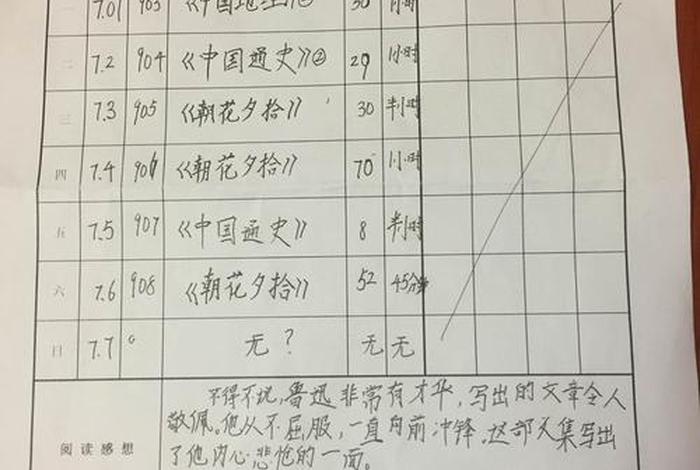 一 7.01 903 《中国地理》② 30 1小时
二 7.2 904 《中国通史》② 29 1小时
三 7.3 905 《朝花夕拾》 30 半时
四 7.4 906 《朝花夕拾》 70 1小时
五 7.5 907 《中国通史》 8 半时
六 7.6 908 《朝花夕拾》 52 45分钟
日 7.7 。 无? 无 无
阅读感想
不得不说,鲁迅非常有才华,写出的文章令人
敬佩。他从不屈服,一直向前冲锋。这部文集写出
了他内心悲怆的一面。